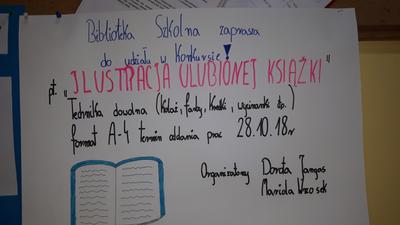 Biblioteka Szkolna zaprasza
do udziału w Konkursie!
pt. "ILUSTRACJA ULUBIONEJ KSIĄŻKI"
Technika dowolna (Kolaż, farby, Kredki, wycinanki itp.)
format A-4 termin oddania prac 28.10.18r
Organizatorzy Dorota Jangas
Mariola Wrzosek